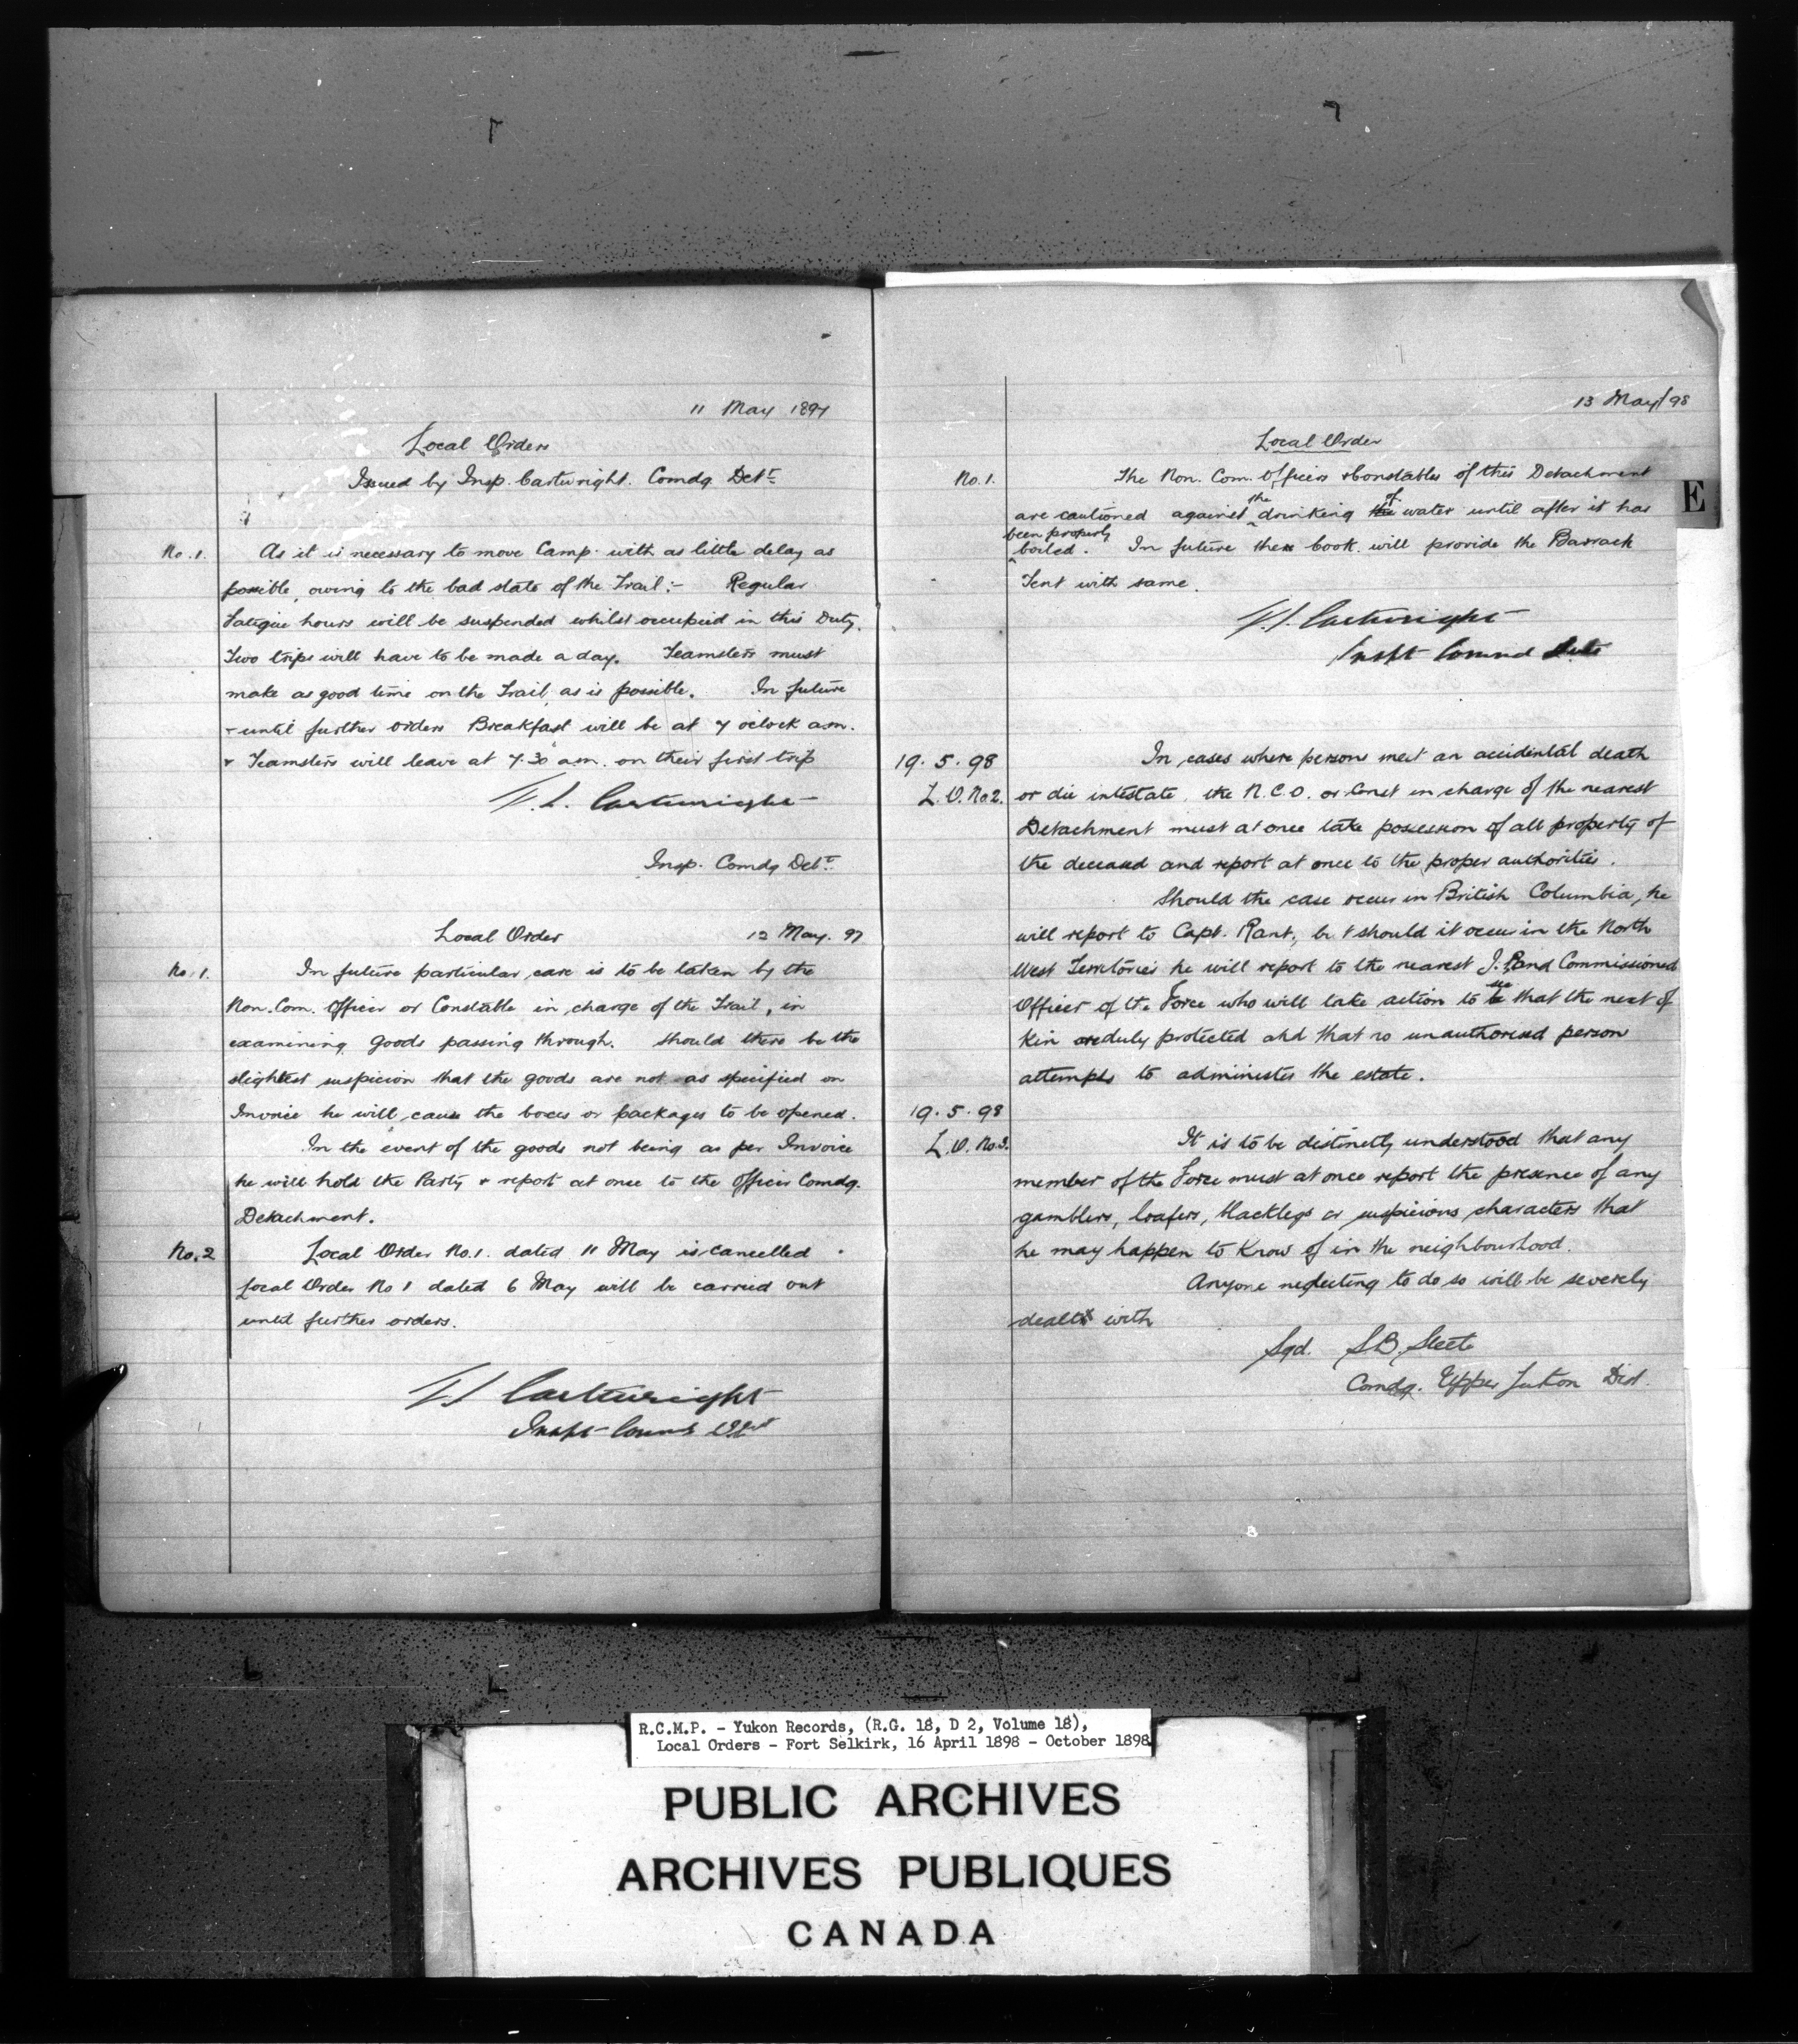 11 May 1897
Local Orders
Issued by Insp. Cartwright. Comdg Det.t
No. 1. As it is necessary to move Camp. with as little delay as
possible, owing to the bad state of the Trail:- Regular
Fatigue hours will be suspended whilst occupied in this Duty.
Two trips will have to be made a day. Teamsters must
make as good time on the Trail, as is possible. In future
- until further orders Breakfast will be at 7 oclock a.m.
+ Teamsters will leave at 7.30 a.m. on their first trip
F. L. Cartwright
Insp. Comdg Det.t
Local Order 12 May. 97
No. 1. In future particular care is to be taken by the
Non. Com. Officer or Constable in charge of the Trail, in
examining goods passing through. Should there be the
slightest suspicion that the goods are not as specified on
Invoice he will cause the boxes or packages to be opened.
In the event of the goods not being as per Invoice
he will hold the Party + report at once to the Officer Comdg.
Detachment.
No. 2 Local Order No. 1. dated 11 May is cancelled.
Local Order No 1 dated 6 May will be carried out
until further orders.
Cartwright
Inspt
13 May/98
Local Order
No. 1. The Non. Com. Officers & Constables of this Detachment
are cautioned against the drinking the of water until after it has
been properly
boiled. In future the cook will provide the Barrack
Tent with same.
Cartwright
Inspt
19.5.98 In cases where persons meet an accidental death
L.O. No 2. or die intestate, the N.C.O. or Const in charge of the nearest
Detachment must at once take possession of all property of
the deceased and report at once to the proper authorities.
Should the case occur in British Columbia, he
will report to Capt. Rant, but should it occur in the North
West Territories he will report to the nearest J.P. and Commissioned
Officer of the Force who will take action to see that the next of
Kin are duly protected and that no unauthorised person
attempts to administer the estate.
19.5.98
L.O. No. 3. It is to be distinctly understood that any
member of the Force must at once report the presence of any
gamblers, loafers, blacklegs or suspicious characters that
he may happen to Know of in the neighbourhood.
Anyone neglecting to do so will be severely
dealt with
Sgd. S.B. Steele
Comdg. Upper Yukon Dist.
E
R.C.M.P. - Yukon Records, (R.G. 18, D 2, Volume 18),
Local Orders - Fort Selkirk, 16 April 1898 - October 1898
PUBLIC ARCHIVES
ARCHIVES PUBLIQUES
CANADA